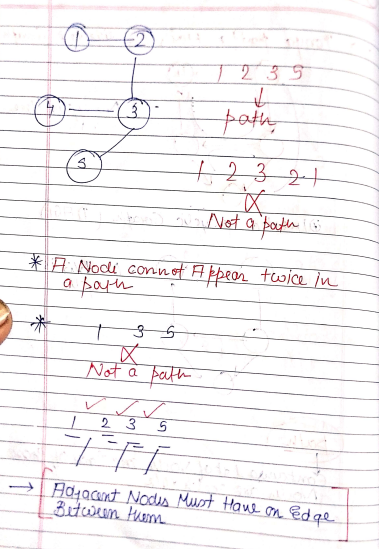 1 2
1 2 3 5
4 3
path
5
1 2 3 2 1
Not a path
* A Node cannot Appear twice in
a path
* 1 3 5
Not a path
1 2 3 5
→ Adjacent Nodes Must Have an Edge
Between them